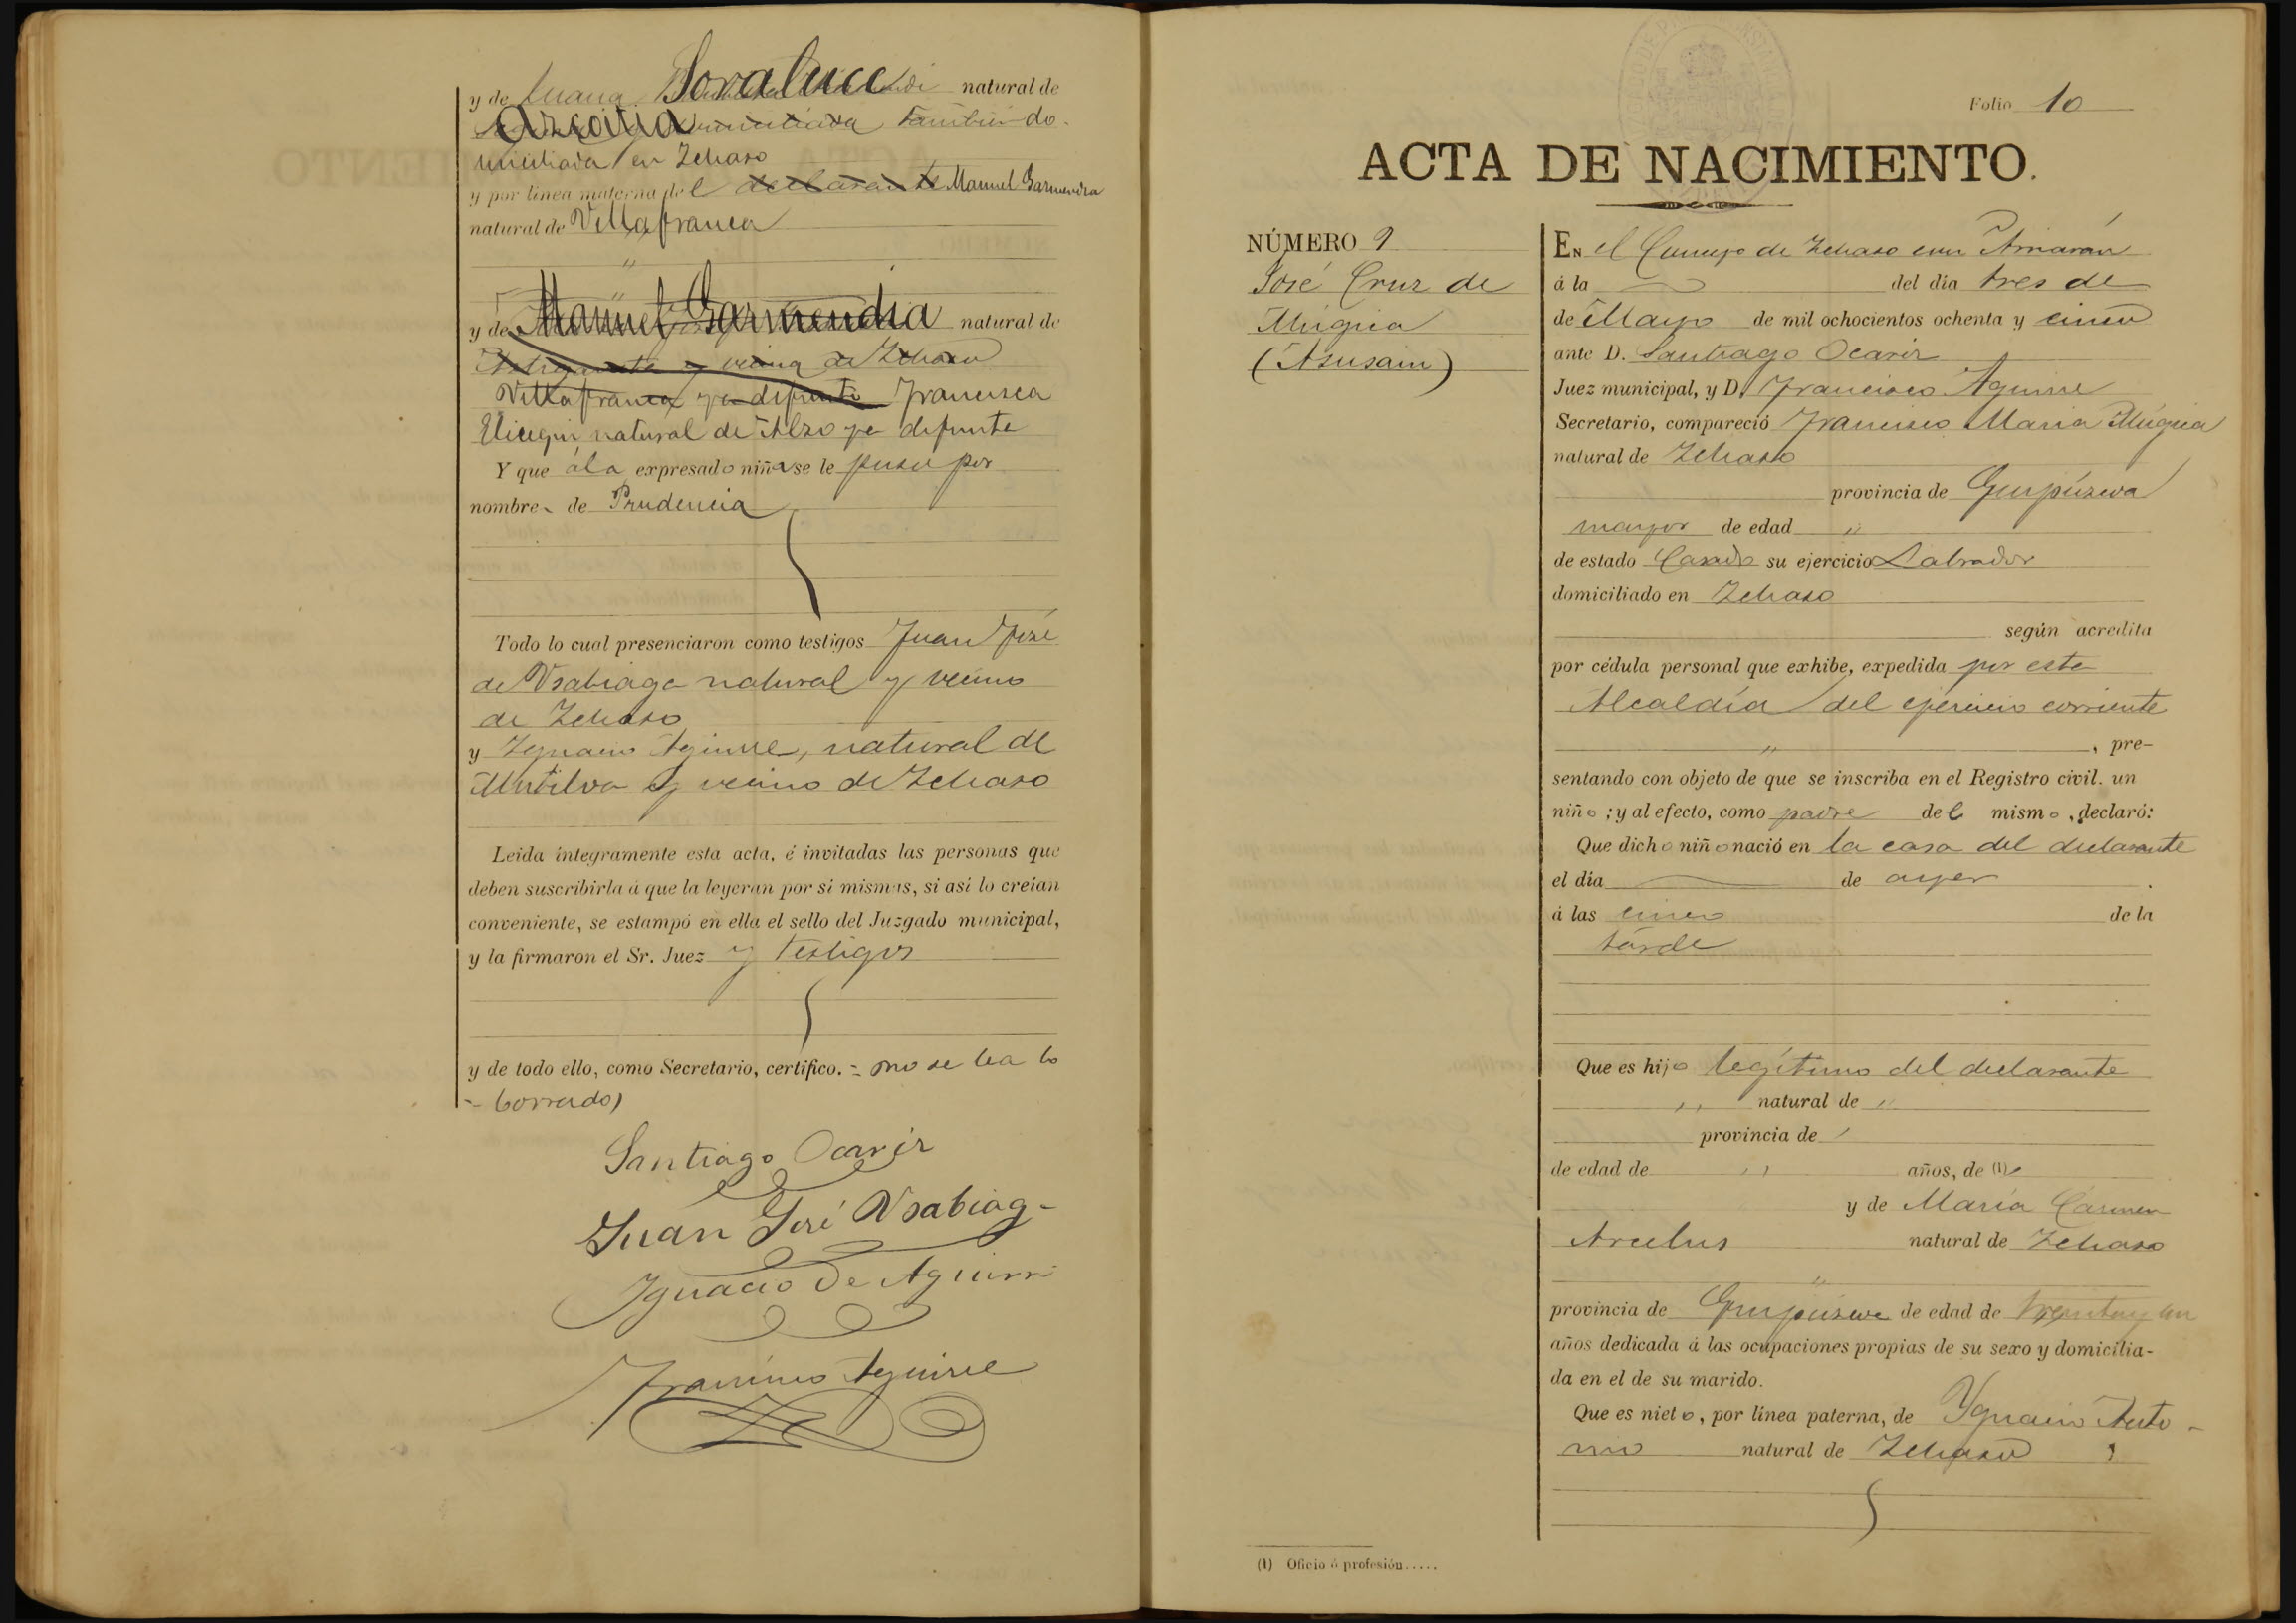 y de Juana Soraluce natural de
Azcoitia tambien do-
miciliada en Zeharo
y por línea materna del declarante Manuel Garmendia
natural de Villafranca
"
"
y de Manuel Garmendia natural de
y vecina de Zeharo
Villafranca ya difunto Francisca
natural de Alzo ya difunta
Y que á la expresado niña se le puso por
nombre de Prudencia
Todo lo cual presenciaron como testigos Juan José
de Usabiaga natural y vecino
de Zeharo
y Ygnacio Aguirre, natural de
Mutiloa y vecino de Zeharo
Leida íntegramente esta acta, é invitadas las personas que
deben suscribirla á que la leyeran por sí mismas, si así lo creían
conveniente, se estampó en ella el sello del Juzgado municipal,
y la firmaron el Sr. Juez y testigos
y de todo ello, como Secretario, certifico. = no se lea lo
- borrado)
Santiago Ocariz
Juan José Usabiag-
Ygnacio De Aguirri
Francisco Aguirre
Folio 10
ACTA DE NACIMIENTO.
NÚMERO 9
José Cruz de
Múgica
(Asusain)
EN el Concejo de Zeharo con Arriarán
á la del día tres de
de Mayo de mil ochocientos ochenta y cinco
ante D. Santiago Ocariz
Juez municipal, y D. Francisco Aguirre
Secretario, compareció Francisco Maria Múgica
natural de Zeharo
provincia de Guipúzcoa
mayor de edad "
de estado Casado su ejercicio Labrador
domiciliado en Zeharo
según acredita
por cédula personal que exhibe, expedida por esta
Alcaldía del ejercicio corriente
" , pre-
sentando con objeto de que se inscriba en el Registro civil. un
niño ; y al efecto, como padre del mismo, declaró:
Que dicho niño nació en la casa del declarante
el día de ayer .
á las cinco de la
tarde
Que es hijo legítimo del declarante
" natural de "
provincia de
de edad de " años, de (1)
y de María Cármen
Arcelus natural de Zeharo
"
provincia de Guipúzcoa de edad de treinta y un
años dedicada á las ocupaciones propias de su sexo y domicilia-
da en el de su marido.
Que es nieto, por línea paterna, de Ygnacio Anto-
nio natural de Zeharo
(1) Oficio ó profesión.....